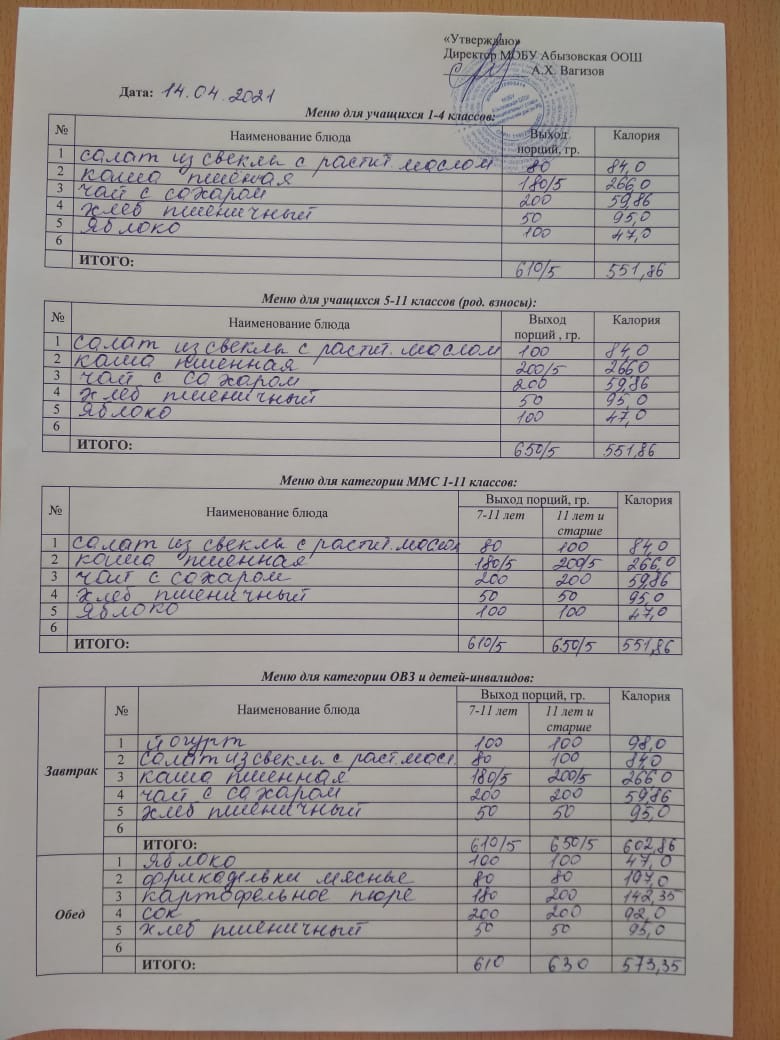 «Утверждаю»
Директор МОБУ Абызовская ООШ
А.Х. Вагизов
Дата: 14.04.2021
Меню для учащихся 1-4 классов:
№ Наименование блюда Выход порций, гр. Калория
1 салат из свеклы с растит. маслом 80 84,0
2 каша пшеная 180/5 266,0
3 чай с сахаром 200 59,86
4 хлеб пшеничный 50 95,0
5 Яблоко 100 47,0
6
ИТОГО: 610/5 551,86
Меню для учащихся 5-11 классов (род. взносы):
№ Наименование блюда Выход порций , гр. Калория
1 салат из свеклы с растит. маслом 100 84,0
2 каша пшенная 200/5 266,0
3 чай с сахаром 200 59,86
4 хлеб пшеничный 50 95,0
5 Яблоко 100 47,0
6
ИТОГО: 650/5 551,86
Меню для категории ММС 1-11 классов:
№ Наименование блюда Выход порций, гр. Калория
7-11 лет 11 лет и старше
1 салат из свеклы с растит. маслом 80 100 84,0
2 каша пшенная 180/5 200/5 266,0
3 чай с сахаром 200 200 59,86
4 хлеб пшеничный 50 50 95,0
5 Яблоко 100 100 47,0
6
ИТОГО: 610/5 650/5 551,86
Меню для категории ОВЗ и детей-инвалидов:
№ Наименование блюда Выход порций, гр. Калория
7-11 лет 11 лет и старше
Завтрак
1 йогурт 100 100 98,0
2 салат из свеклы с раст. масл. 80 100 84,0
3 каша пшенная 180/5 200/5 266,0
4 чай с сахаром 200 200 59,86
5 хлеб пшеничный 50 50 95,0
6
ИТОГО: 610/5 650/5 602,86
Обед
1 Яблоко 100 100 47,0
2 фрикадельки мясные 80 80 197,0
3 картофельное пюре 180 200 142,35
4 сок 200 200 92,0
5 хлеб пшеничный 50 50 95,0
6
ИТОГО: 610 630 573,35